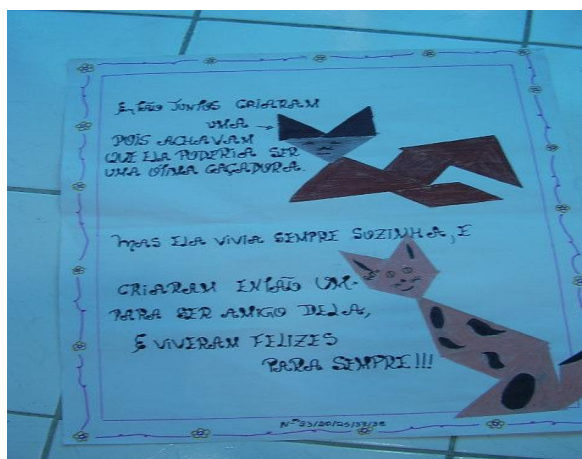 ENTÃO JUNTOS CRIARAM
UMA →
POIS ACHAVAM
QUE ELA PODERIA SER
UMA OTIMA CAÇADORA.
MAS ELA VIVIA SEMPRE SOZINHA, E
CRIARAM ENTÃO UM-
PARA SER AMIGO DELA,
E VIVERAM FELIZES
PARA SEMPRE!!!